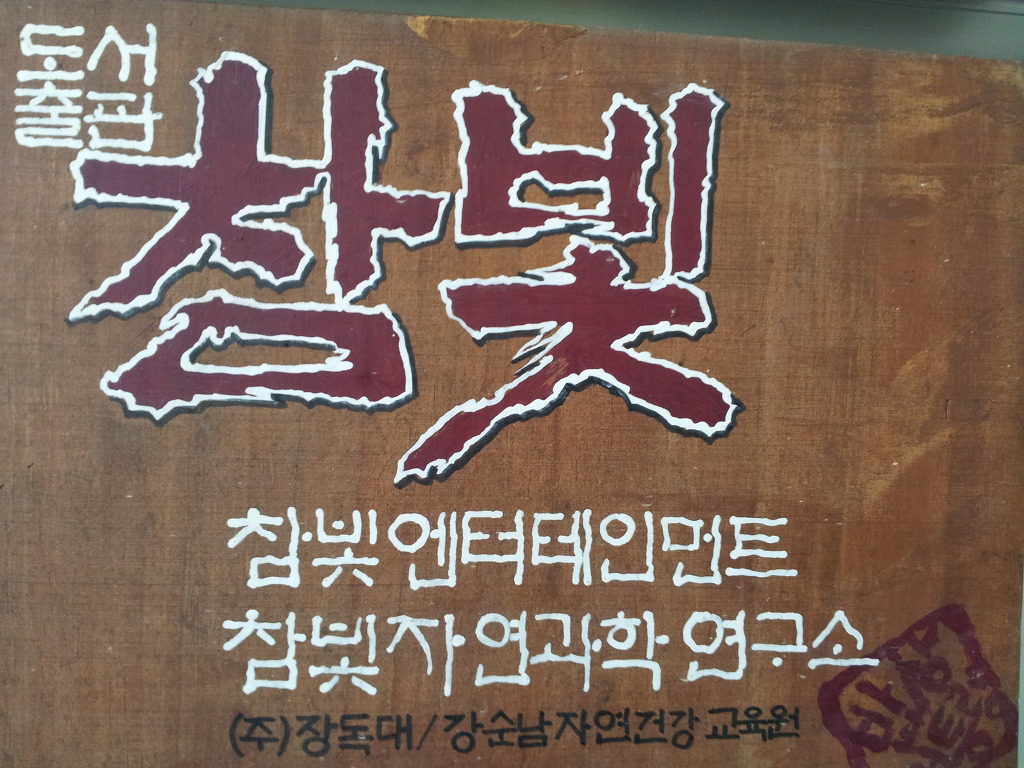 도서
출판
참빗
참빗엔터테인먼트
참빗자연과학 연구소
(주)장독대/강순남자연건강교육원